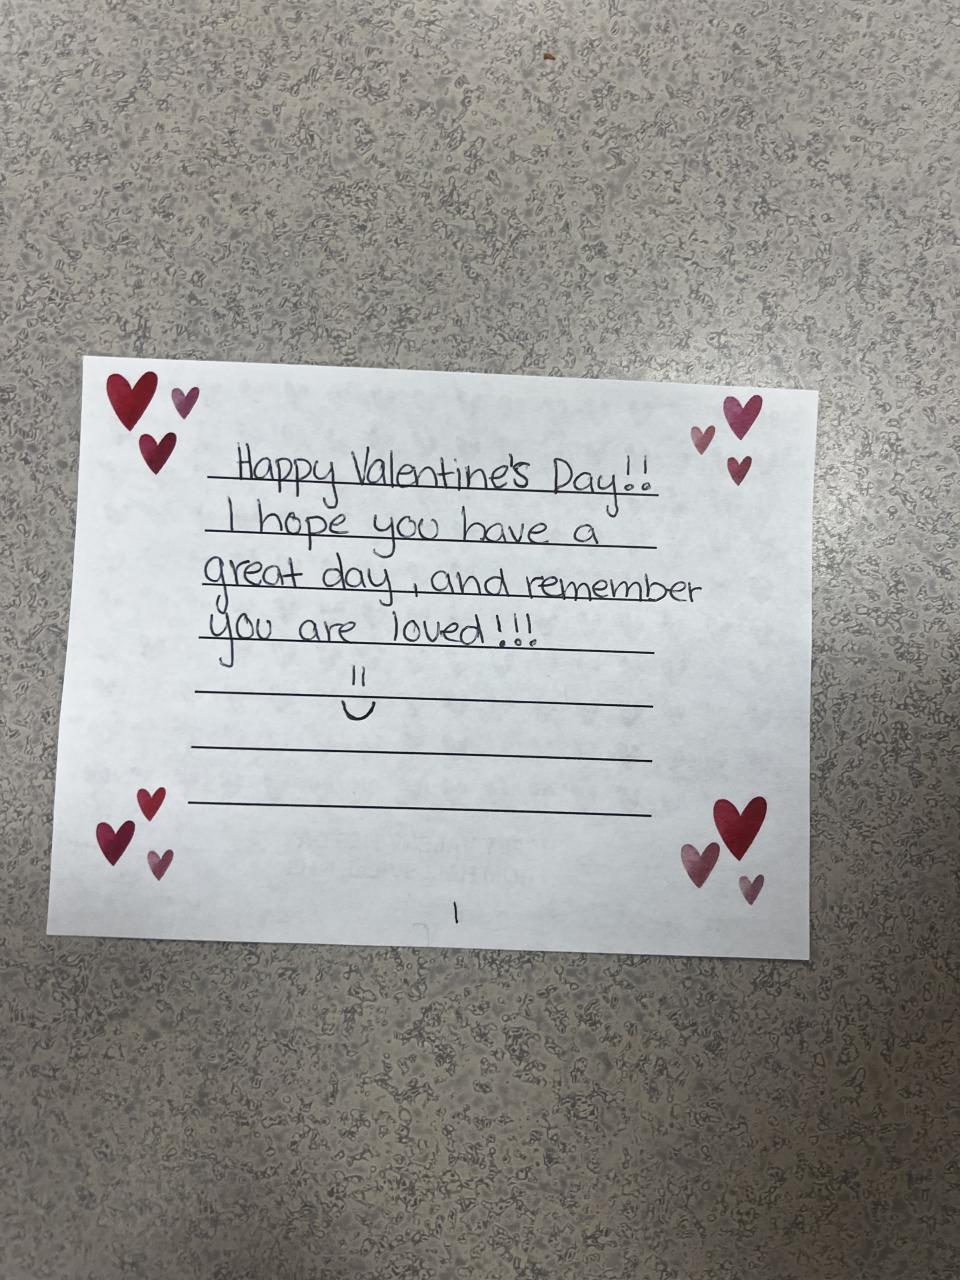 Happy Valentine's Day!!
I hope you have a
great day, and remember
you are loved!!!
1